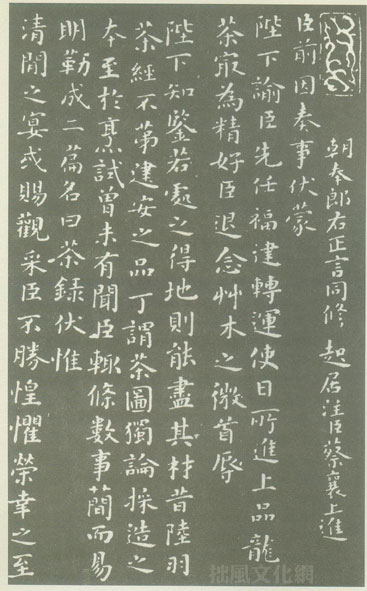 朝奉郎右正言同修 起居注臣蔡襄上進
臣前因奏事伏蒙
陛下諭臣先任福建轉運使日所進上品龍
茶㝡為精好臣退念艸木之微首辱
陛下知鑒若處之得地則能盡其材昔陸羽
茶經不苐建安之品丁謂茶圖獨論採造之
本至於烹試曾未有聞臣輒條數事簡而易
明勒成二篇名曰茶録伏惟
清閒之宴或賜觀采臣不勝惶懼榮幸之至
拙風文化網